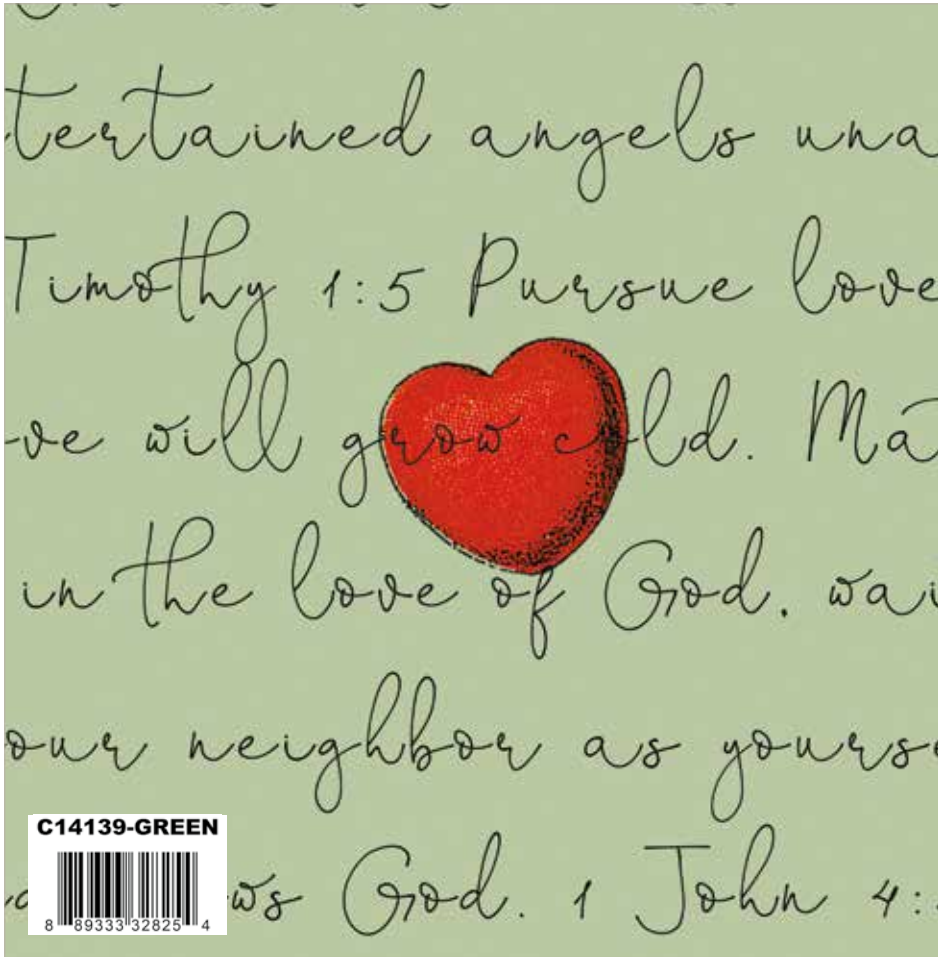 tertained angels una
Timothy 1:5 Pursue love
ve will grow cold. Mat
in the love of God, wai
our neighbor as yourse
ws God. 1 John 4:
C14139-GREEN
8 89333 32825 4